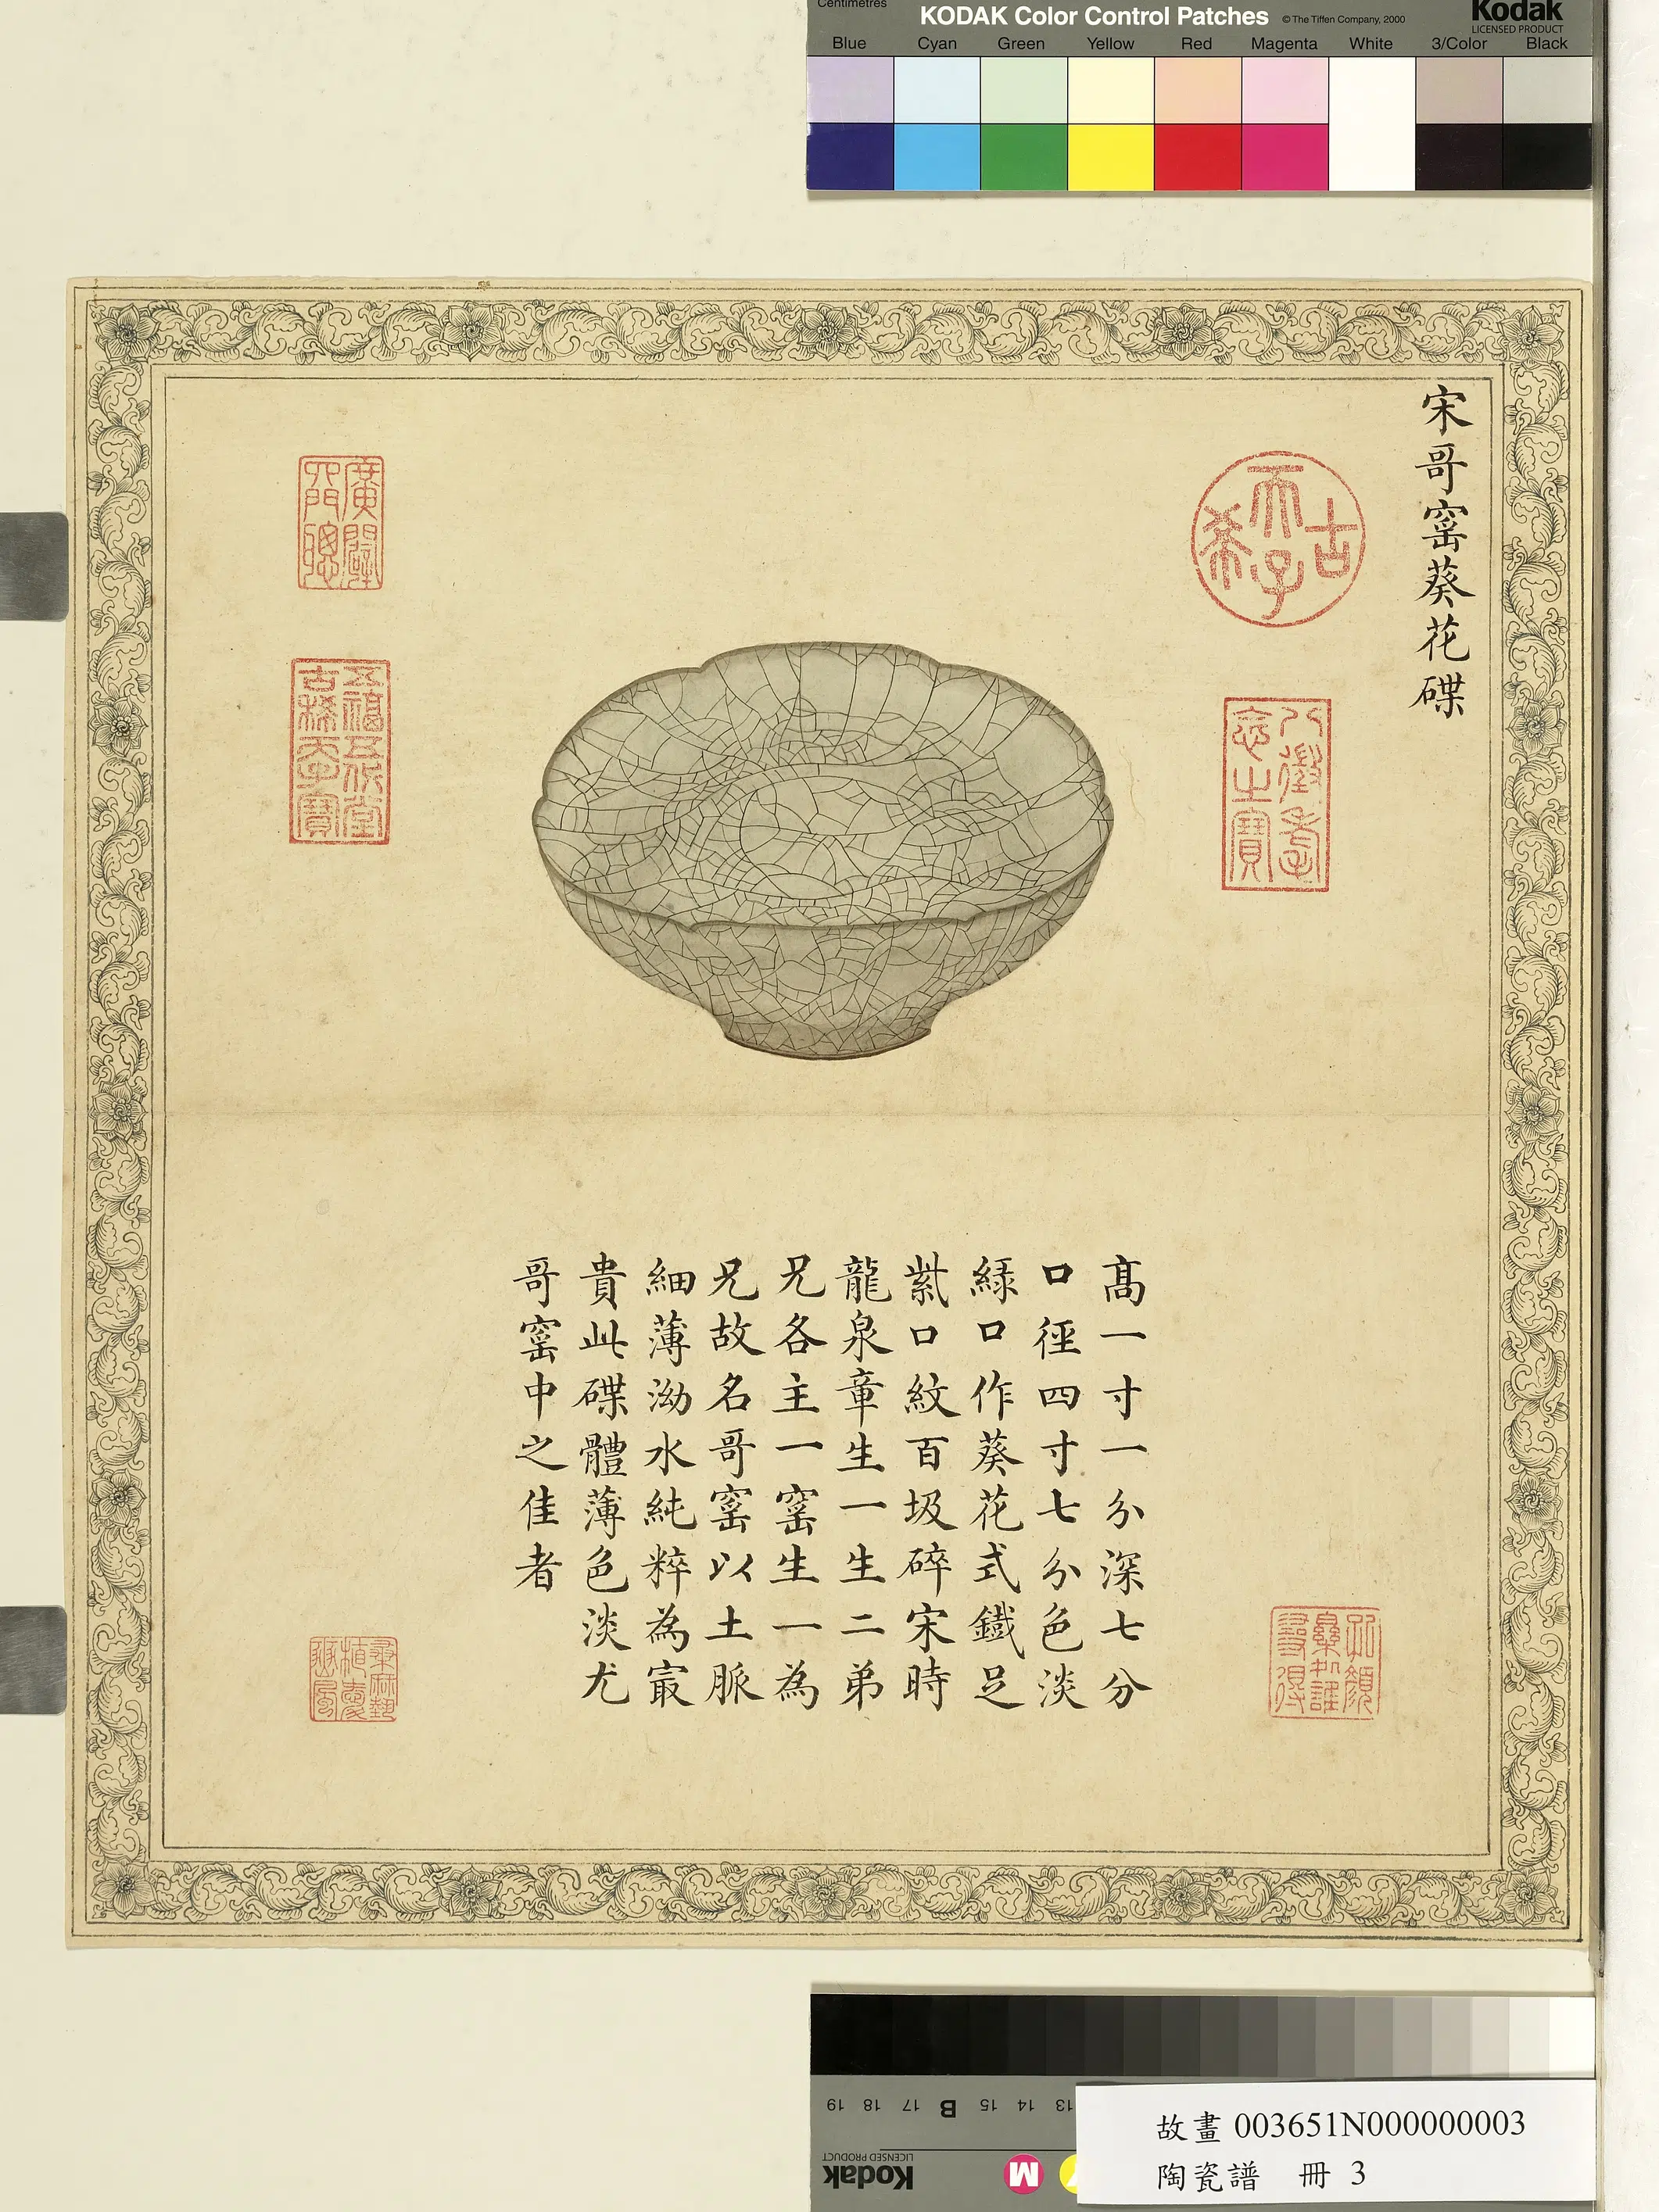 Centimetres
KODAK Color Control Patches © The Tiffen Company, 2000
Kodak
LICENSED PRODUCT
Blue Cyan Green Yellow Red Magenta White 3/Color Black
宋哥窰葵花碟
古希天子
八徵耄念之寶
廣闢四門聰
五福五代堂古稀天子寶
高一寸一分深七分
口徑四寸七分色淡
綠口作葵花式鐵足
紫口紋百圾碎宋時
龍泉章生一生二弟
兄各主一窰生一為
兄故名哥窰以土脈
細薄泑水純粹為寂
貴此碟體薄色淡尤
哥窰中之佳者
19 18 17 B 15 14 13
Kodak
LICENSED PRODUCT
M
故畫 003651N000000003
陶瓷譜 冊 3